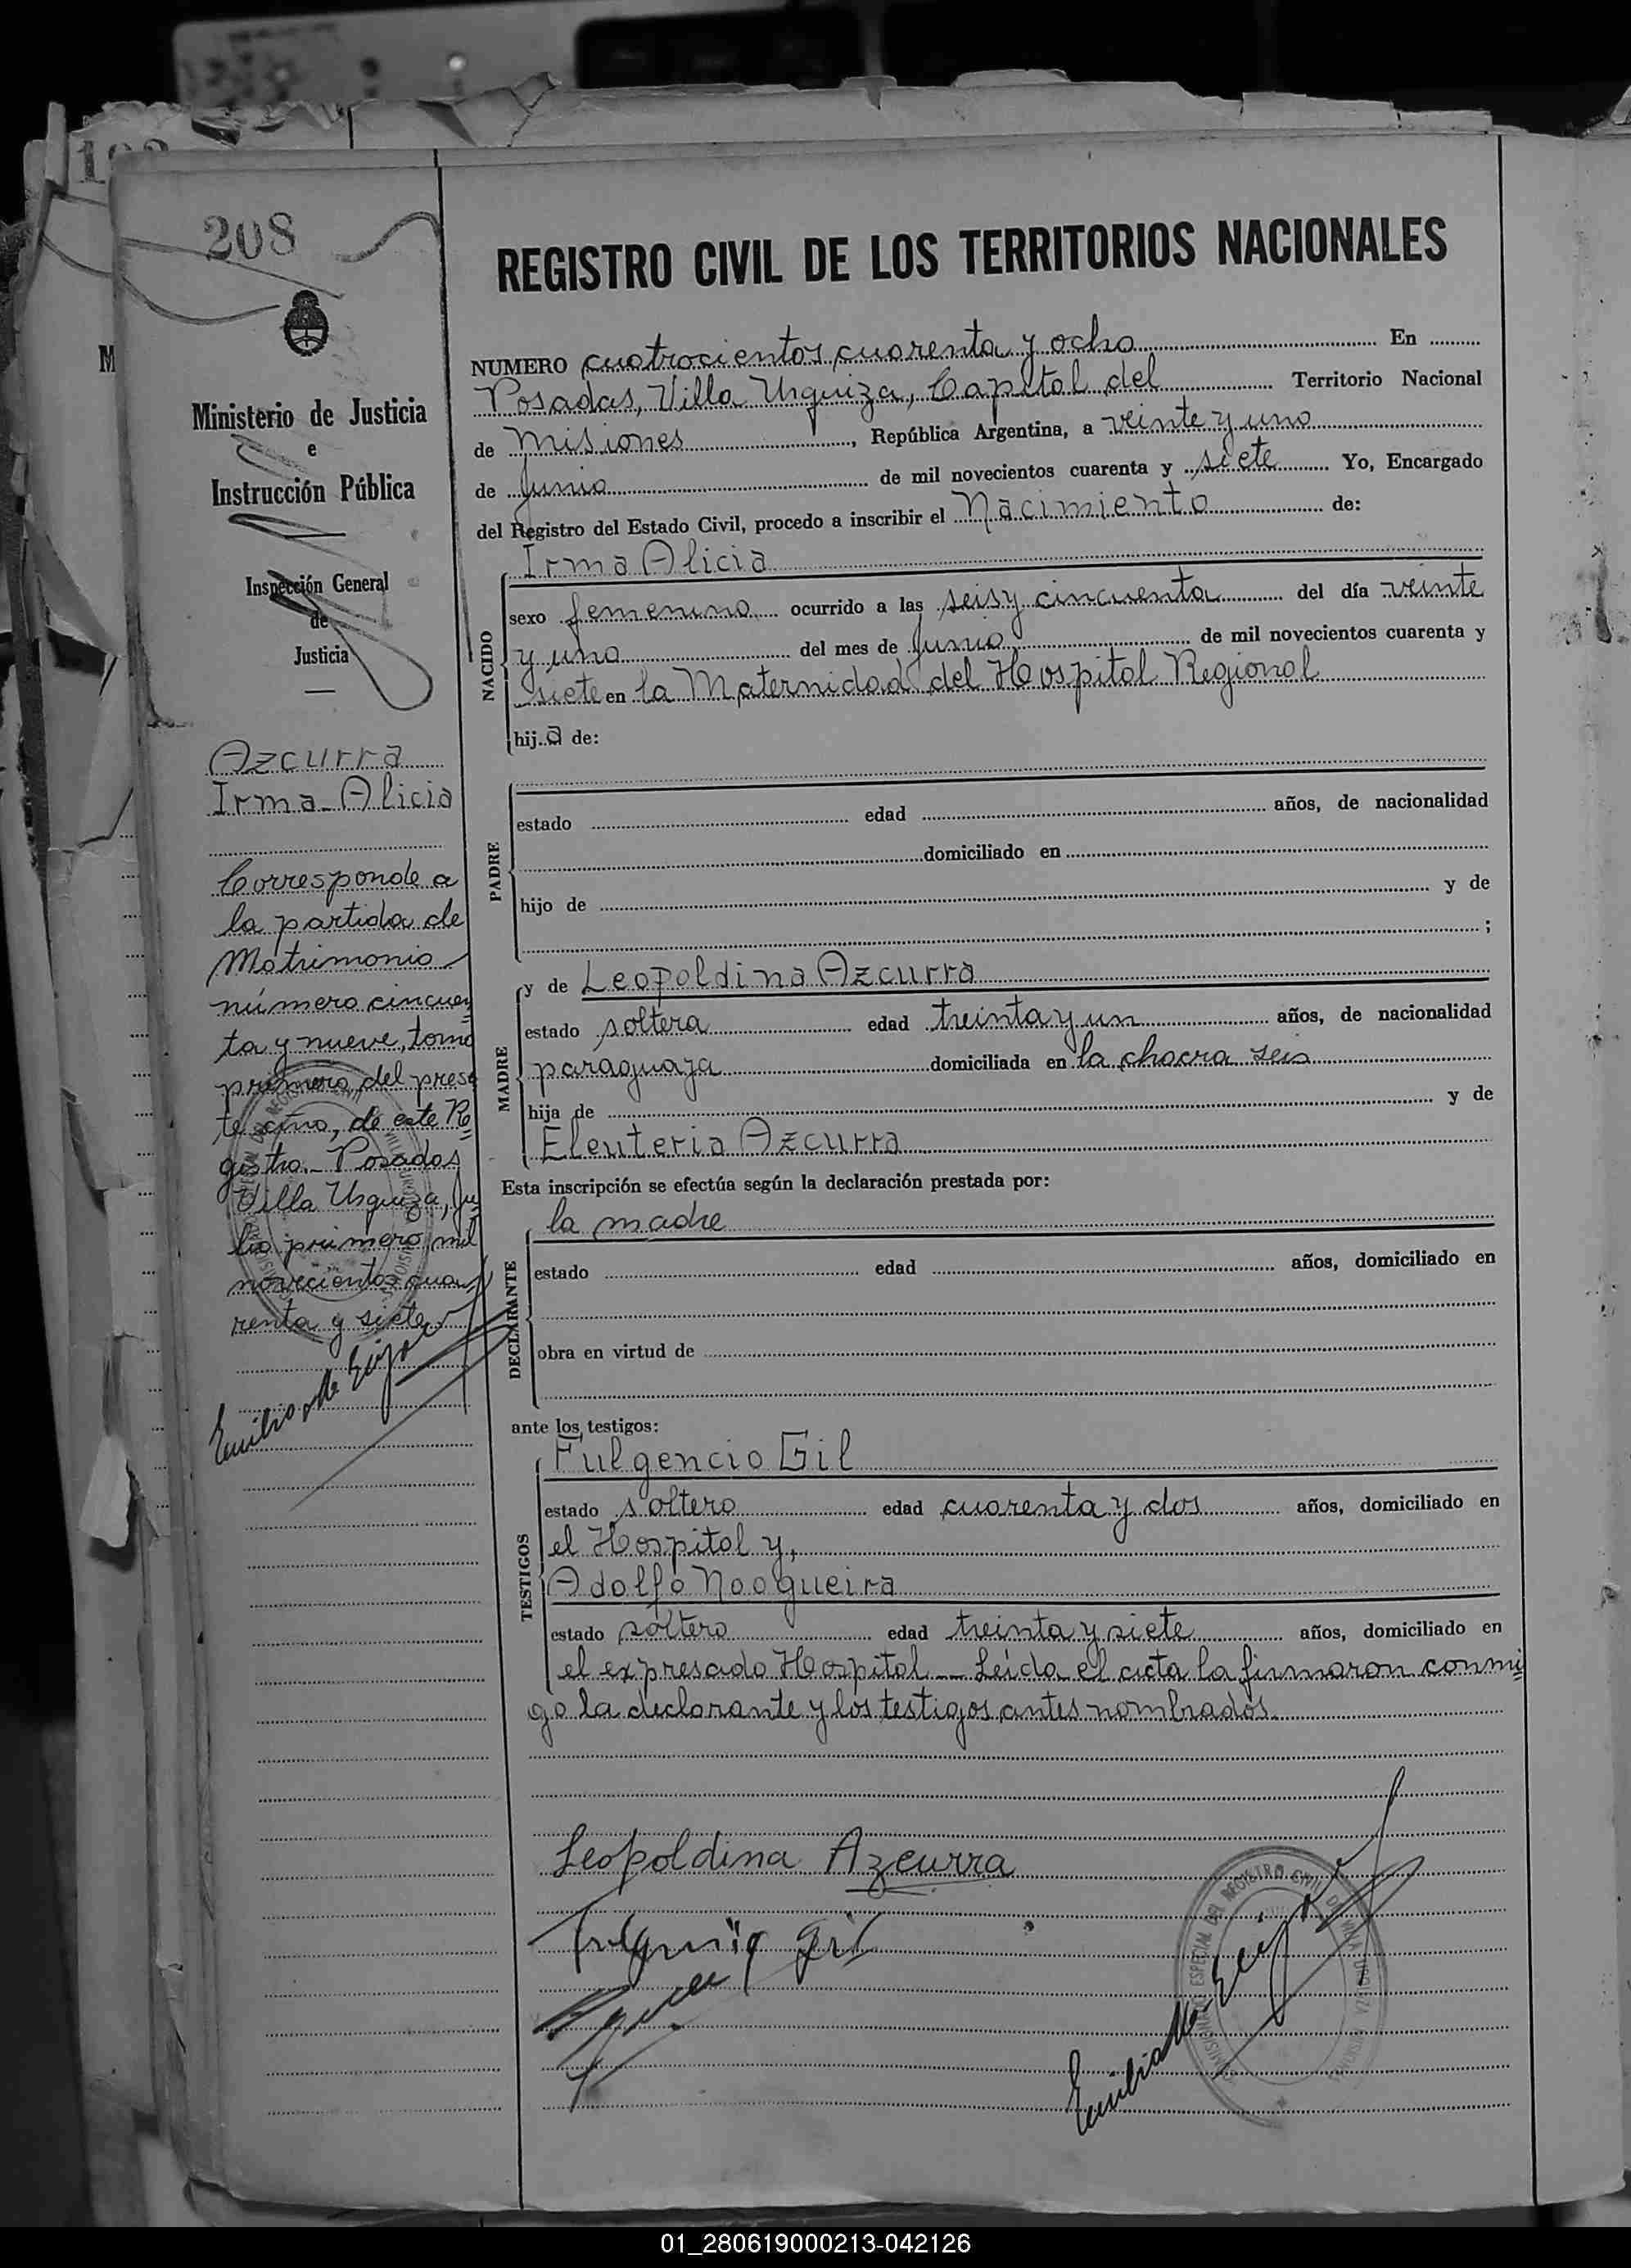 208
Ministerio de Justicia
e
Instrucción Pública
Inspección General
de
Justicia
Azcurra
Irma Alicia
Corresponde a
la partida de
Matrimonio
número cincuen
ta y nueve, tomo
primero del presen
te año, de este Re
gistro.- Posadas
Villa Urquiza, Ju
lio primero mil
novecientos cua
renta y siete
REGISTRO CIVIL DE LOS TERRITORIOS NACIONALES
NUMERO cuatrocientos cuarenta y ocho En
Posadas, Villa Urquiza, Capital del Territorio Nacional
de Misiones, República Argentina, a veinte y uno
de Junio de mil novecientos cuarenta y siete Yo, Encargado
del Registro del Estado Civil, procedo a inscribir el Nacimiento de:
Irma Alicia
NACIDO
sexo femenino ocurrido a las seis y cincuenta del día veinte
y uno del mes de Junio de mil novecientos cuarenta y
siete en la Maternidad del Hospital Regional
hija de:
PADRE
estado edad años, de nacionalidad
domiciliado en
hijo de y de
;
y de Leopoldina Azcurra
MADRE
estado soltera edad treinta y un años, de nacionalidad
paraguaya domiciliada en la chacra seis
hija de y de
Eleuteria Azcurra
Esta inscripción se efectúa según la declaración prestada por:
la madre
DECLARANTE
estado edad años, domiciliado en
obra en virtud de
ante los testigos:
Fulgencio Gil
TESTIGOS
estado soltero edad cuarenta y dos años, domiciliado en
el Hospital y,
Adolfo Noogueira
estado soltero edad treinta y siete años, domiciliado en
el expresado Hospital.- Leída el acta la firmaron conmi
go la declarante y los testigos antes nombrados.
Leopoldina Azcurra
Fulgencio Gil
01_280619000213-042126